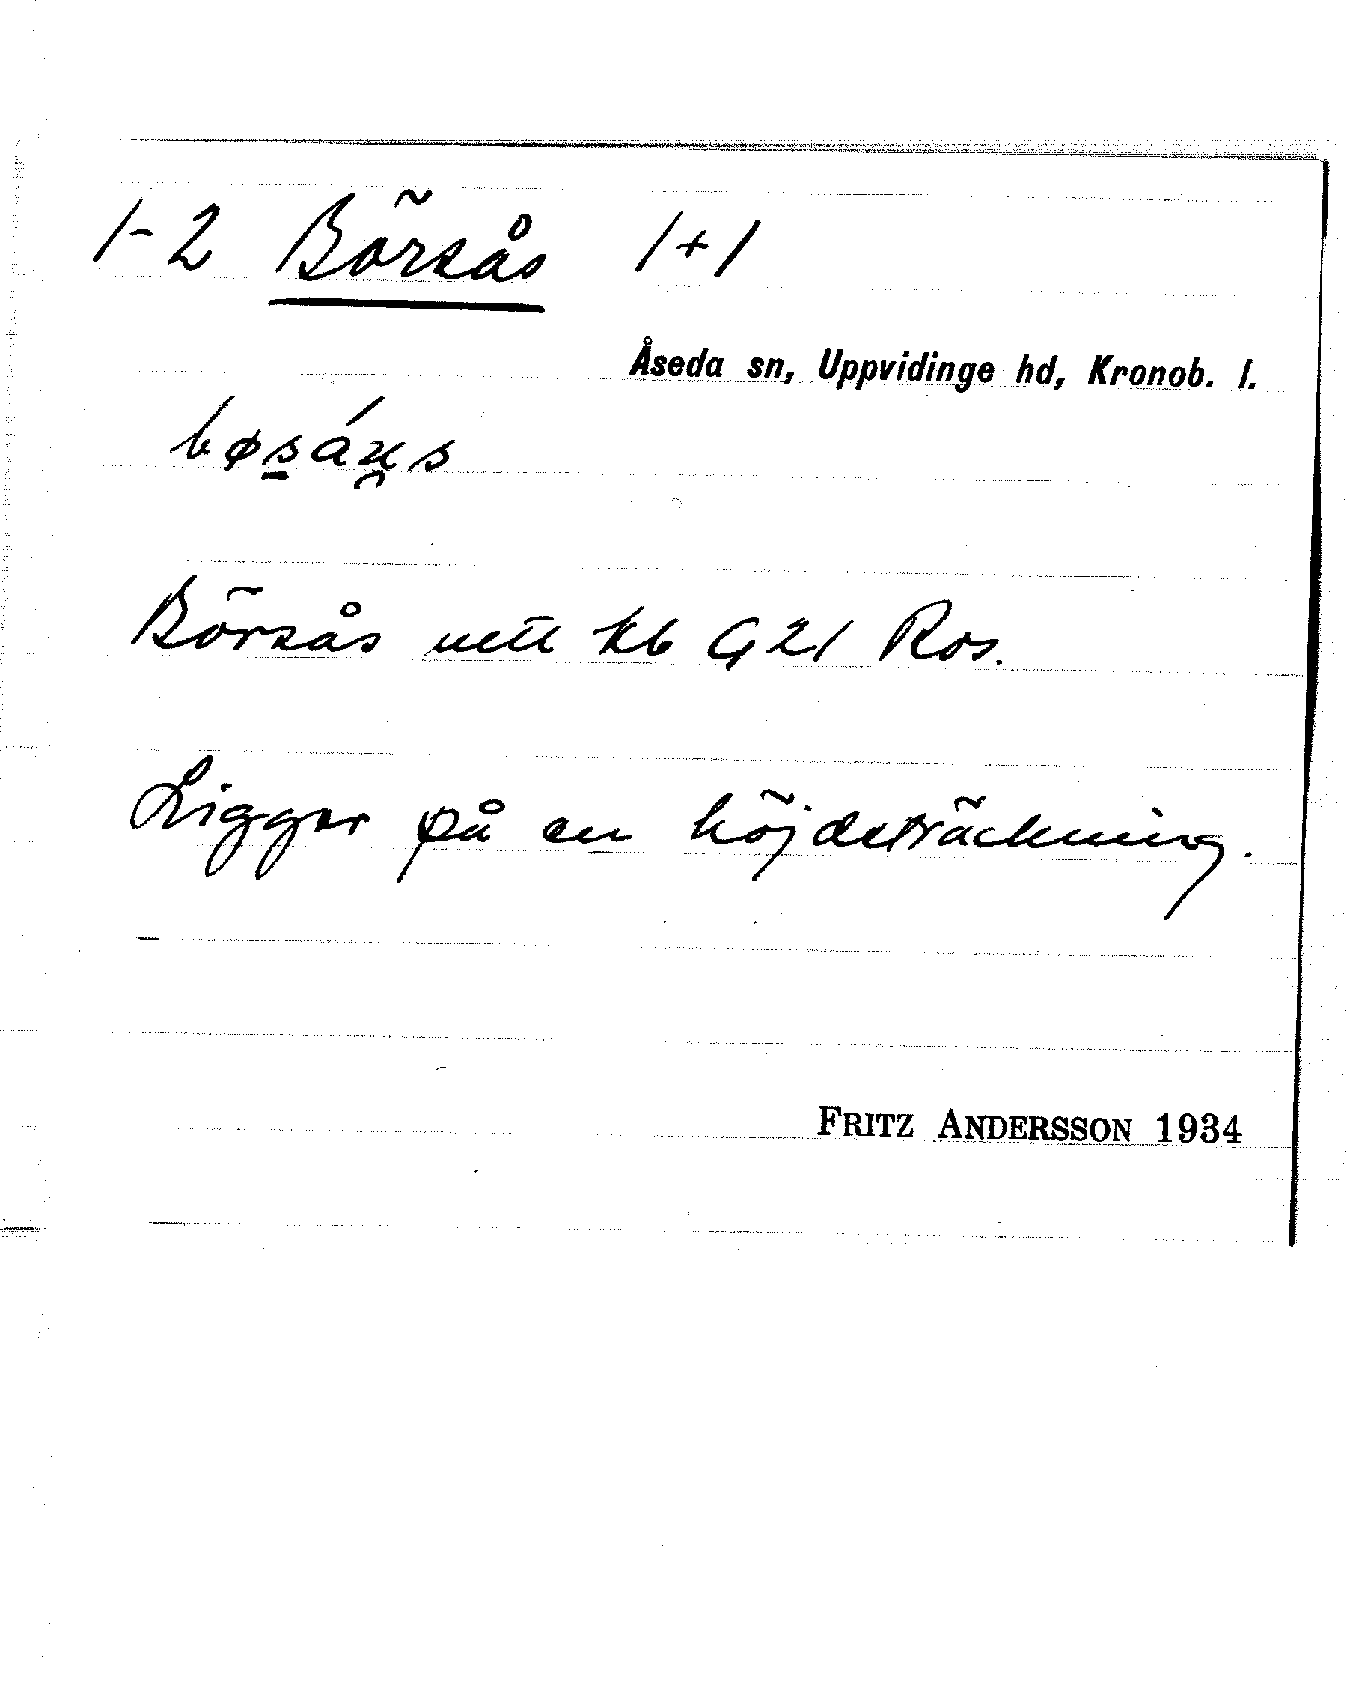 1-2 Börsås 1+1
Åseda sn, Uppvidinge hd, Kronob. l.
Börsås kb G21 Ros.
Ligger på en höjdsträckning.
FRITZ ANDERSSON 1934